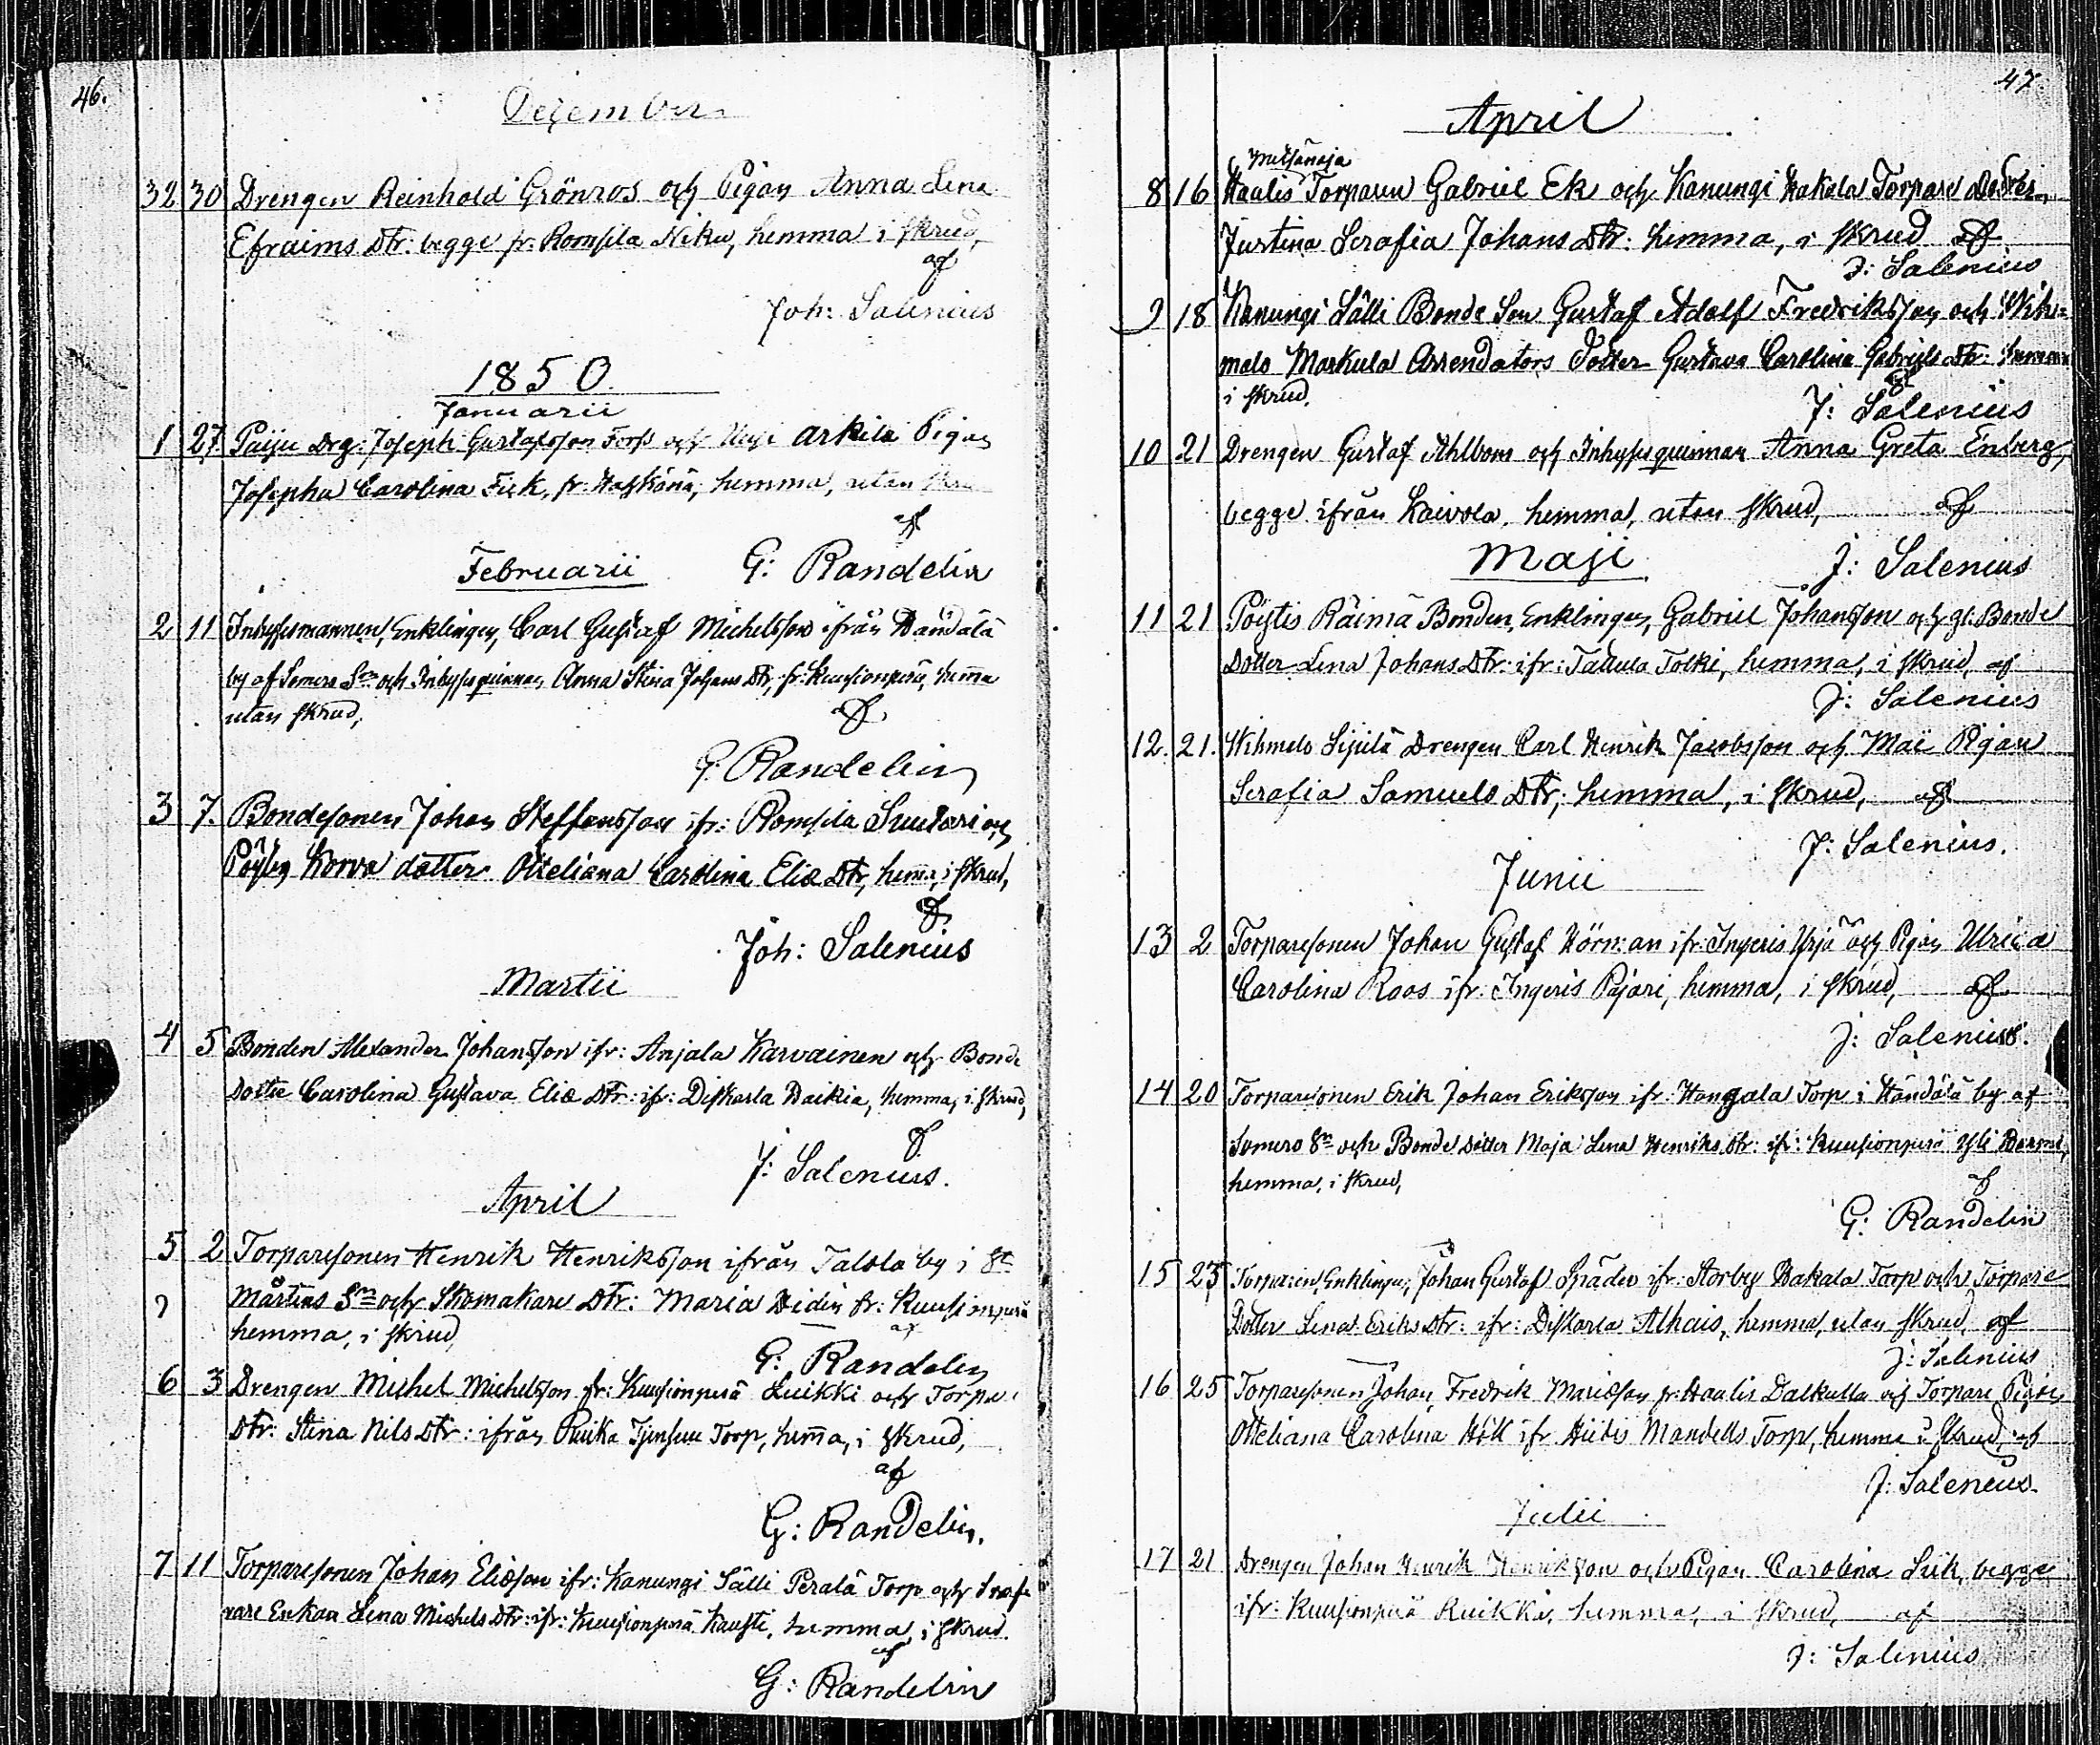 46.
December
32 30 Drengen Reinhold Grönros och Pigan Anna Lena
Efraims Dtr: begge fr: Romsila Niku, hemma i skrud,
af
Joh: Salenius
1850.
Januarii
1 27. Paiju Drg: Joseph Gustafsson Fors och arkila Pigan
Josepha Carolina Fick, fr: Haskönä, hemma, utan
af
G: Randelin
Februarii
2 11 Inhysesmannen, Enklingen, Carl Gustaf Michelsson ifrån Händälä
by af Somero Sn och Inhysesquinnan Anna Stina Johans Dtr, fr: Kuusjonperä, hema
utan skrud,
af
G. Randelin
3 7. Bondesonen Johan Steffansson ifr: Romsila Suutari och
Korva dotter Otteliana Carolina Eliæ Dtr, hema, i skrud,
af
Joh: Salenius
Martii
4 5 Bonden Alexander Johansson ifr: Anjala Karvainen och Bonde
Dottre Carolina Gustava Eliæ Dtr: ifr: Diskarla Waikia, hemma, i skrud,
af
J: Salenius.
April
5 2 Torparesonen Henrik Henriksson ifrån Talola by i St
Mårtins Sn och Skomakare Dtr: Maria Widin fr: Kuusjonperä
hemma, i skrud,
af
G: Randelin
6 3 Drengen Michel Michelsson fr: Kuusjonperä Luikki och Torpa
Dtr: Stina Nils Dtr: ifrån Torp, hema, i skrud,
af
G: Randelin.
7 11 Torparesonen Johan Eliæson ifr: Kanungi Sälli Perälä Torp och
Enkan Lena Michels Dtr: ifr: Kuusjonperä Kausti, hemma, i skrud.
af
G: Randelin
47.
April
Metsänoja
8 16 Haalis Torparen Gabriel Ek och Kanungi Hakala Torpare Dotter,
Justina Serafia Johans Dtr: hemma, i skrud af
J: Salenius
9 18 Kanungi Sälli Bonde Son Gustaf Adolf Fredriksson och Wih-
melo Markula Arrendators Dotter Gustava Carolina Gabriels Dtr: hemma
i skrud.
af
J: Salenius
10 21 Drengen Gustaf Ahlbom och Inhysesquinnan Anna Greta Enberg,
begge ifrån Kaivola, hemma, utan skrud, af
J: Salenius
Maji
11 21 Pöytis Räimä Bonden, Enklingen, Gabriel Johansson och gl: Bonde
Dotter Lena Johans Dtr: ifr: Tattula Tolki, hemma, i skrud, af
J: Salenius
12. 21. Wihmelo Sipilä Drengen Carl Henrik Jacobsson och Mai Pigan
Serafia Samuels Dtr; hemma, i skrud, af
J: Salenius.
Junii
13 2 Torparesonen Johan Gustaf Hörman ifr: Ingeris Yrjä och Pigan Ulrica
Carolina Roos ifr: Ingeris Pajari, hemma, i skrud, af
J: Salenius.
14 20 Torparesonen Erik Johan Eriksson ifr: Hangala Torp i Händälä by af
Somero Sn och Bonde Dotter Maja Lena Henriks Dtr: ifr: Kuusjonperä
hemma, i skrud,
af
G: Randelin
15 23 Torparen, Enklingen, Johan Gustaf ifr: Storby Hakala Torp och Torpare
Dotter Lena Eriks Dtr: ifr: Diskarla Alhais, hemma, utan skrud, af
J: Salenius
16 25 Torparesonen Johan Fredrik Mariæson fr: Haalis Dalkulla och Torpare Pigan
Otteliana Carolina Höll ifr Mandells Torp, hemma i skrud, af
J: Salenius.
Julii
17 21 Drengen Johan Henrik Henriksson och Pigan Carolina begge
ifr: Kuusjonperä Ruikka, hemma, i skrud, af
J: Salenius